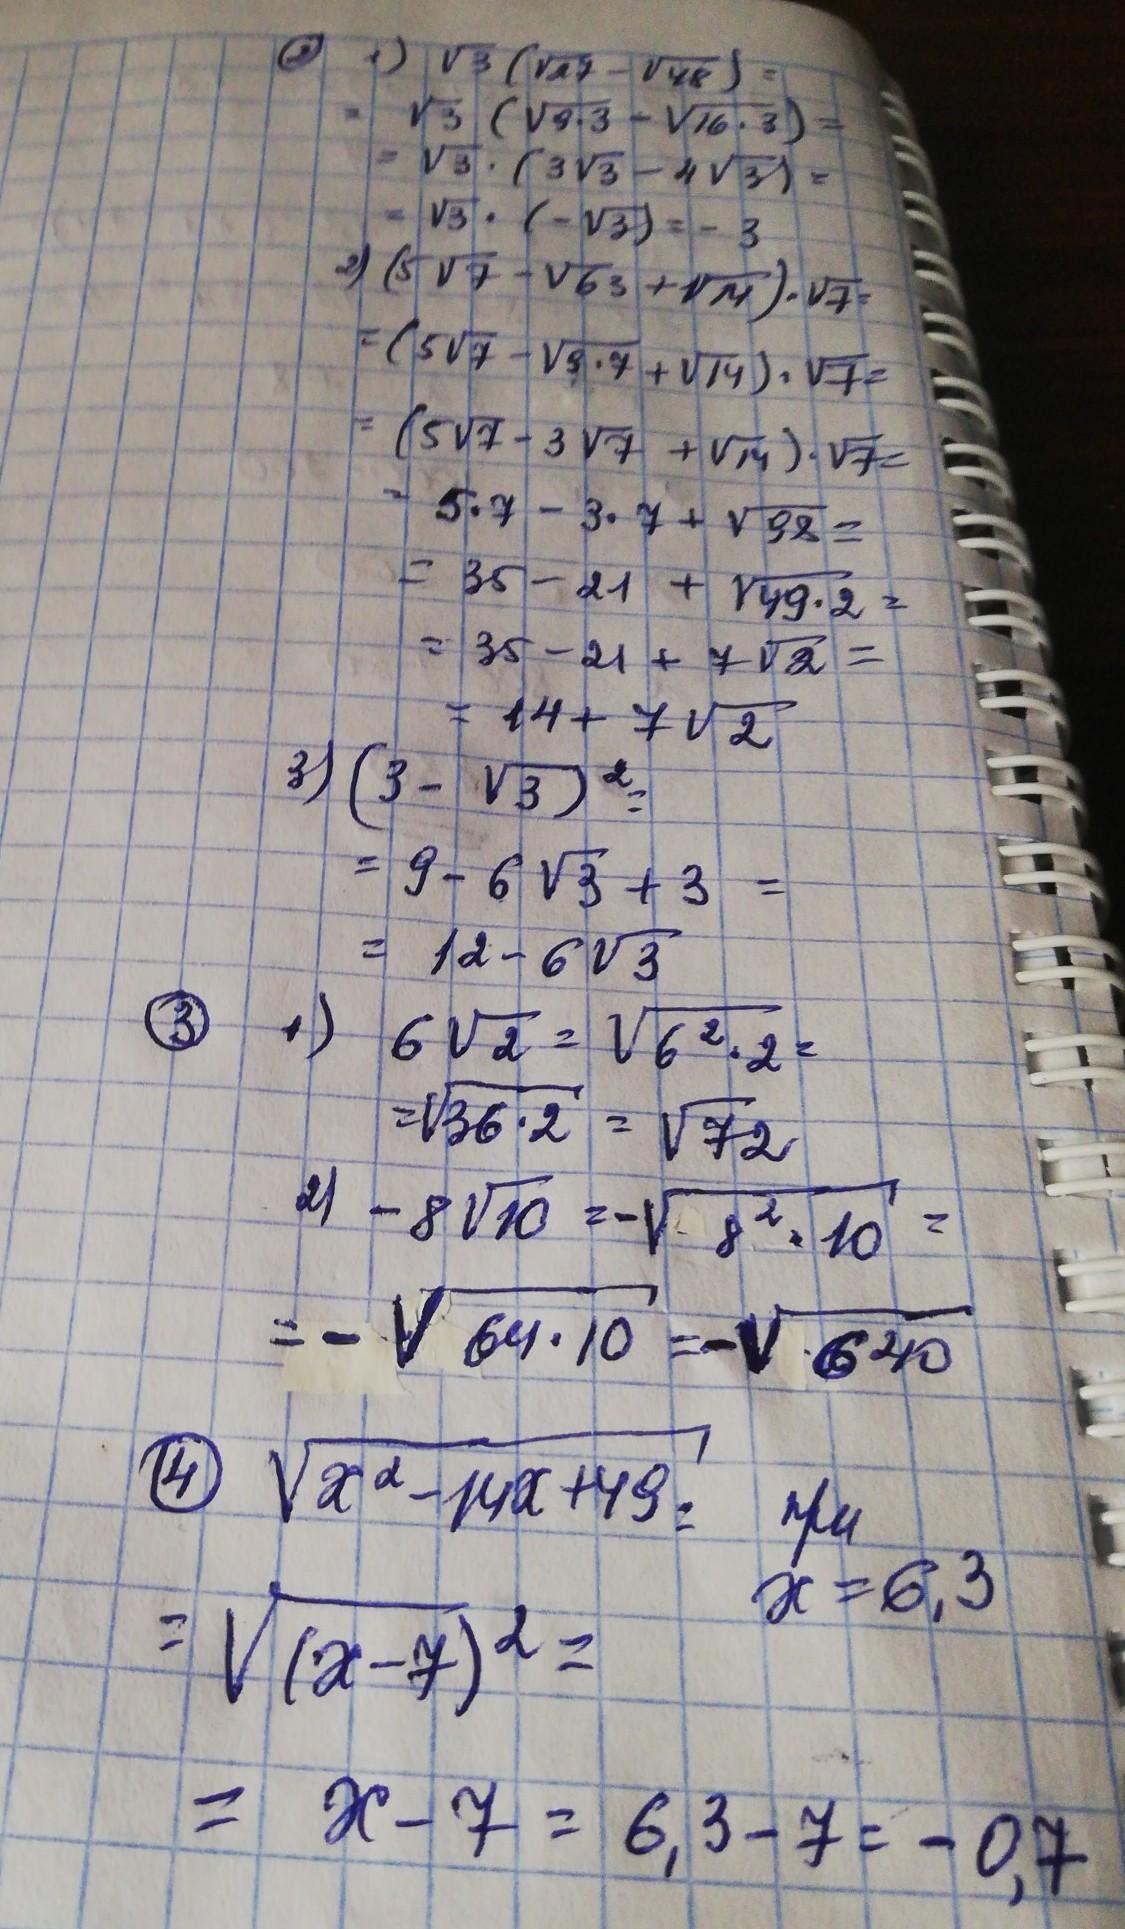 ② 1) √3 (√27 - √48) =
= √3 (√9·3 - √16·3) =
= √3 · (3√3 - 4√3) =
= √3 · (-√3) = - 3
2) (5√7 - √63 + √14) · √7 =
= (5√7 - √9·7 + √14) · √7 =
= (5√7 - 3√7 + √14) · √7 =
= 5·7 - 3·7 + √98 =
= 35 - 21 + √49·2 =
= 35 - 21 + 7√2 =
= 14 + 7√2
3) (3 - √3)² =
= 9 - 6√3 + 3 =
= 12 - 6√3
③ 1) 6√2 = √6²·2 =
= √36·2 = √72
2) - 8√10 = -√8²·10 =
= - √64·10 = -√640
④ √x² - 14x + 49 = при
x = 6,3
= √(x - 7)² =
= x - 7 = 6,3 - 7 = - 0,7